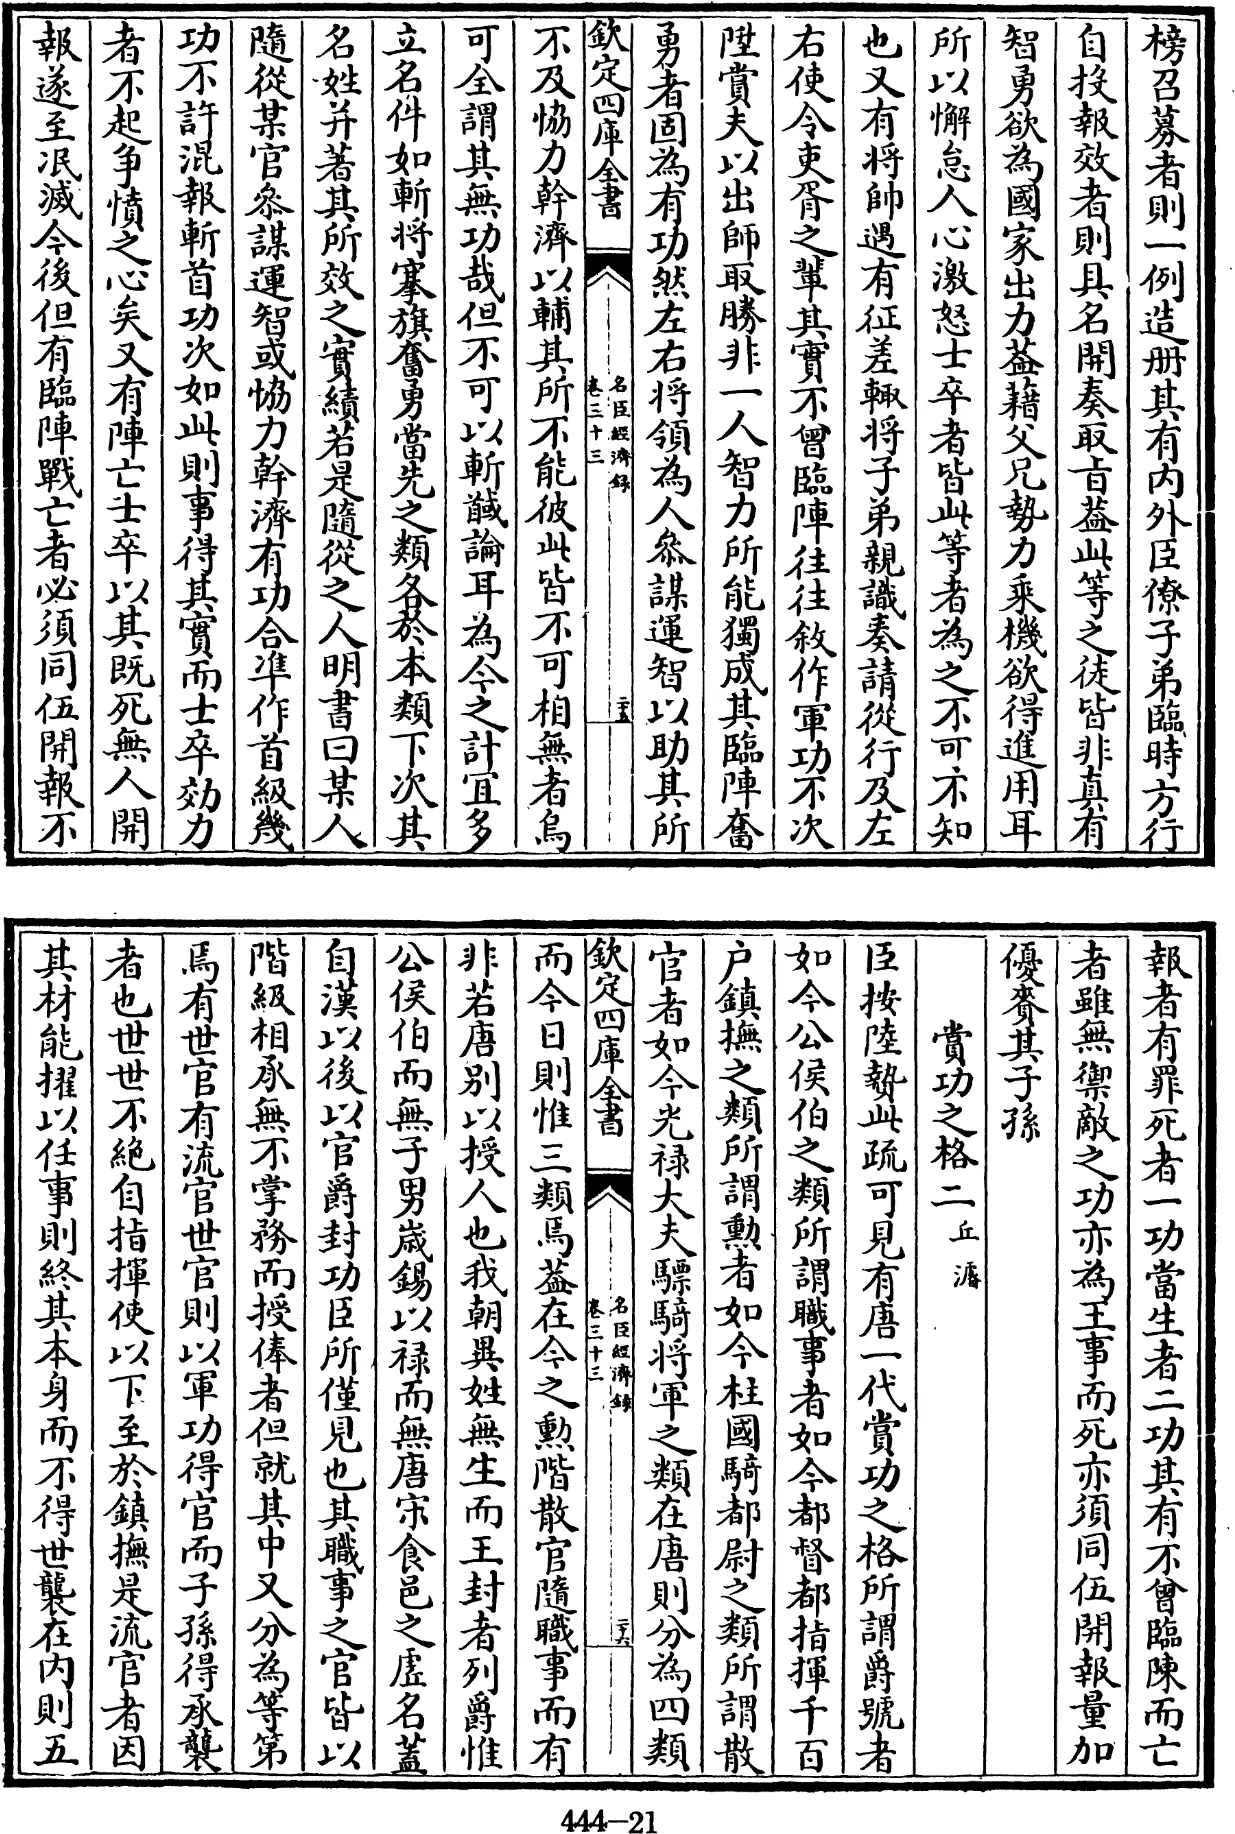 榜召募者則一例造册其有内外臣僚子弟臨時方行
自投報效者則具名開奏取㫖葢此等之徒皆非真有
智勇欲為國家出力葢藉父兄勢力乘機欲得進用耳
所以懈怠人心激怒士卒者皆此等者為之不可不知
也又有將帥遇有征差輙將子弟親識奏請從行及左
右使令吏胥之輩其實不曾臨陣往往敘作軍功不次
陞賞夫以出師取勝非一人智力所能獨成其臨陣奮
勇者固為有功然左右將領為人叅謀運智以助其所
欽定四庫全書
名臣經濟録
卷三十三
二十五
不及恊力幹濟以輔其所不能彼此皆不可相無者烏
可全謂其無功哉但不可以斬馘論耳為今之計宜多
立名件如斬將搴旗奮勇當先之類各於本類下次其
名姓并著其所效之實績若是隨從之人明書曰某人
隨從某官叅謀運智或恊力幹濟有功合准作首級幾
功不許混報斬首功次如此則事得其實而士卒効力
者不起争憤之心矣又有陣亡士卒以其既死無人開
報遂至泯滅今後但有臨陣戰亡者必須同伍開報不
報者有罪死者一功當生者二功其有不曾臨陳而亡
者雖無禦敵之功亦為王事而死亦須同伍開報量加
優賚其子孫
賞功之格二 丘濬
臣按陸贄此疏可見有唐一代賞功之格所謂爵號者
如今公侯伯之類所謂職事者如今都督都指揮千百
户鎮撫之類所謂勲者如今柱國騎都尉之類所謂散
官者如今光禄大夫驃騎將軍之類在唐則分為四類
欽定四庫全書
名臣經濟録
卷三十三
二十六
而今日則惟三類焉葢在今之勲階散官隨職事而有
非若唐別以授人也我朝異姓無生而王封者列爵惟
公侯伯而無子男歳錫以禄而無唐宋食邑之虛名蓋
自漢以後以官爵封功臣所僅見也其職事之官皆以
階級相承無不掌務而授俸者但就其中又分為等第
焉有世官有流官世官則以軍功得官而子孫得承襲
者也世世不絶自指揮使以下至於鎮撫是流官者因
其材能擢以任事則終其本身而不得世襲在内則五
444-21